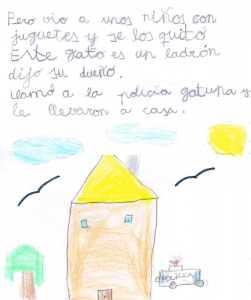 Pero vio a unos niños con
juguetes y se los quitó
Este gato es un ladrón
dijo su dueño.
LLamó a la policia gatuna y
le llevaron a casa.
POLICIA